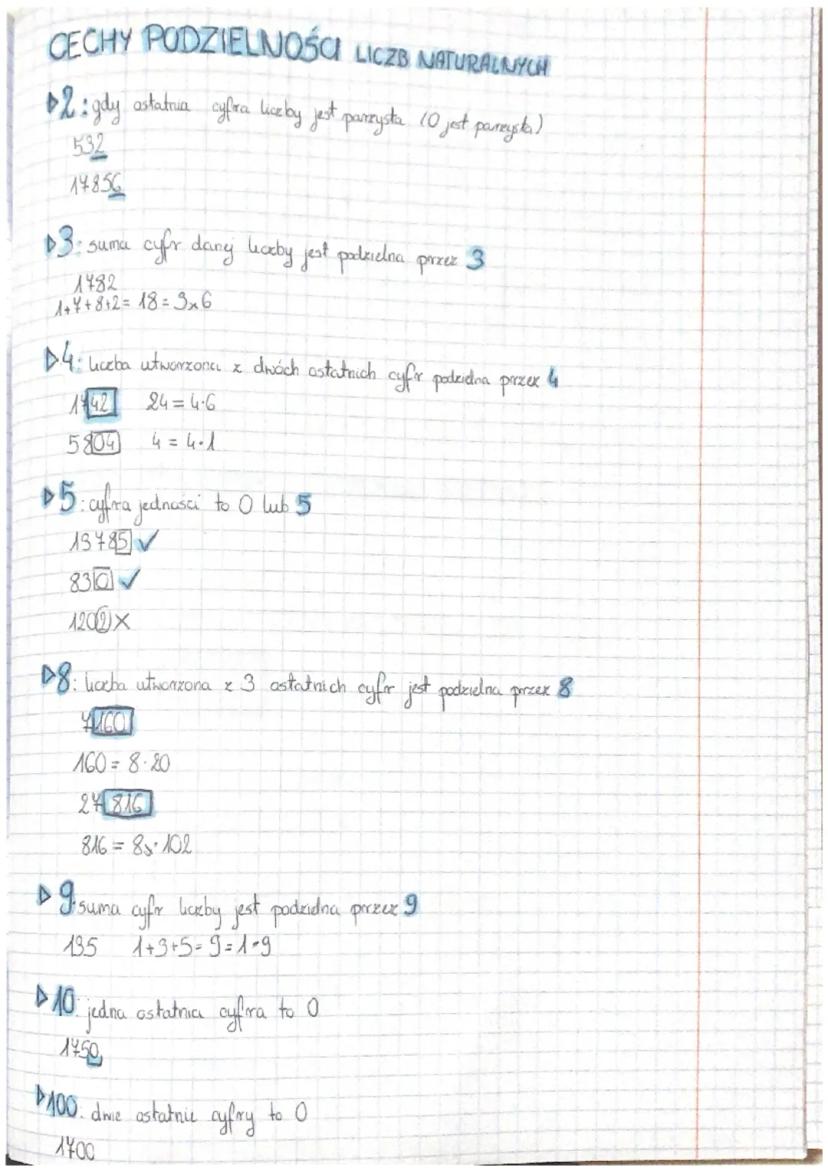 CECHY PODZIELNOŚCI LICZB NATURALNYCH
▷2: gdy ostatnia cyfra liczby jest parzysta (0 jest parzysta)
532
17856
▷3: suma cyfr danej liczby jest podzielna przez 3
1782
1+7+8+2= 18 = 3x6
▷4: liczba utworzona z dwóch ostatnich cyfr podzielna przez 4
1742 24 = 4·6
5804 4 = 4·1
▷5: cyfra jedności to 0 lub 5
13785 ✓
830 ✓
1202 X
▷8: liczba utworzona z 3 ostatnich cyfr jest podzielna przez 8
7160
160 = 8·20
27816
816 = 8x·102
▷9: suma cyfr liczby jest podzielna przez 9
135 1+3+5= 9 = 1·9
▷10: jedna ostatnia cyfra to 0
1750
▷100: dwie ostatnie cyfry to 0
1700